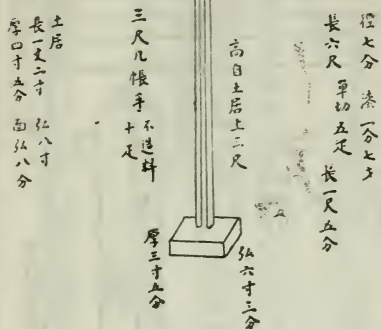 徑七分 漆一分七彡
長六尺 單功五疋 長一尺五分
高自土居上三尺
弘六寸三分
厚三寸五分
三尺几帳手 不造料
十疋
土居
長一丈二寸 弘八寸
厚四寸五分 面弘八分